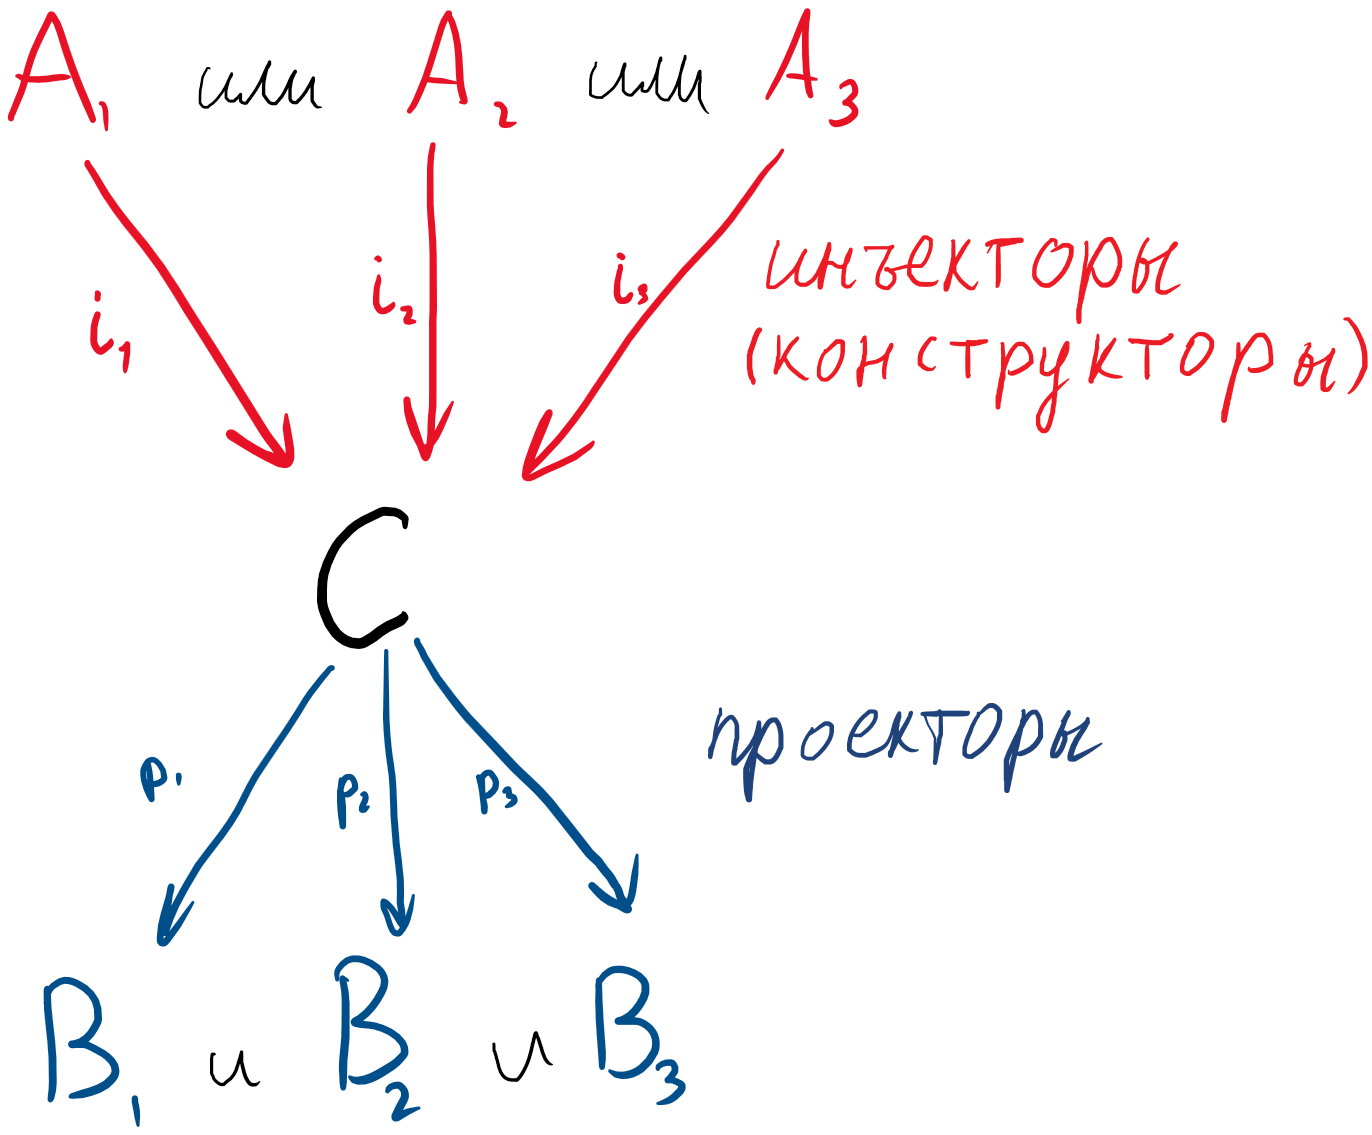 A₁ или A₂ или A₃
i₁ i₂ i₃ инъекторы
(конструкторы)
C
p₁ p₂ p₃ проекторы
B₁ и B₂ и B₃